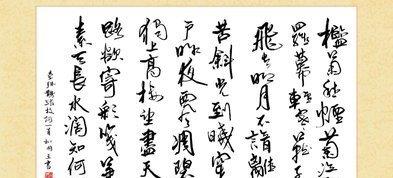 檻菊愁煙蘭泣
羅幕輕寒燕子
飛去明月不諳離
苦斜光到曉穿
戶昨夜西風凋碧
獨上高樓望盡天
路欲寄彩箋兼
素山長水闊知何